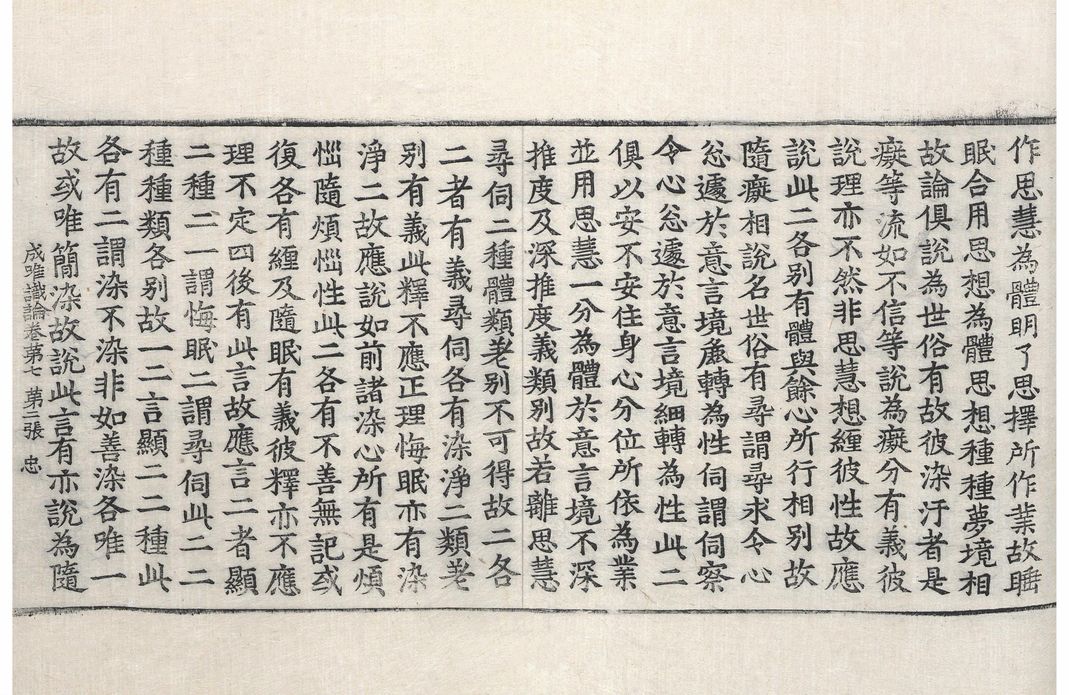 作思慧為體明了思擇所作業故睡
眠合用思想為體思想種種夢境相
故論俱說為世俗有故彼染汙者是
癡等流如不信等說為癡分有義彼
說理亦不然非思慧想纏彼性故應
說此二各別有體與餘心所行相別故
隨癡相說名世俗有尋謂尋求令心
忩遽於意言境麁轉為性伺謂伺察
令心忩遽於意言境細轉為性此二
俱以安不安住身心分位所依為業
並用思慧一分為體於意言境不深
推度及深推度義類別故若離思慧
尋伺二種體類差別不可得故二各
二者有義尋伺各有染淨二類差
別有義此釋不應正理悔眠亦有染
淨二故應說如前諸染心所有是煩
惱隨煩惱性此二各有不善無記或
復各有纏及隨眠有義彼釋亦不應
理不定四後有此言故應言二者顯
二種二一謂悔眠二謂尋伺此二二
種種類各別故一二言顯二二種此
各有二謂染不染非如善染各唯一
故或唯簡染故說此言有亦說為隨
成唯識論卷第七 第二張 忠